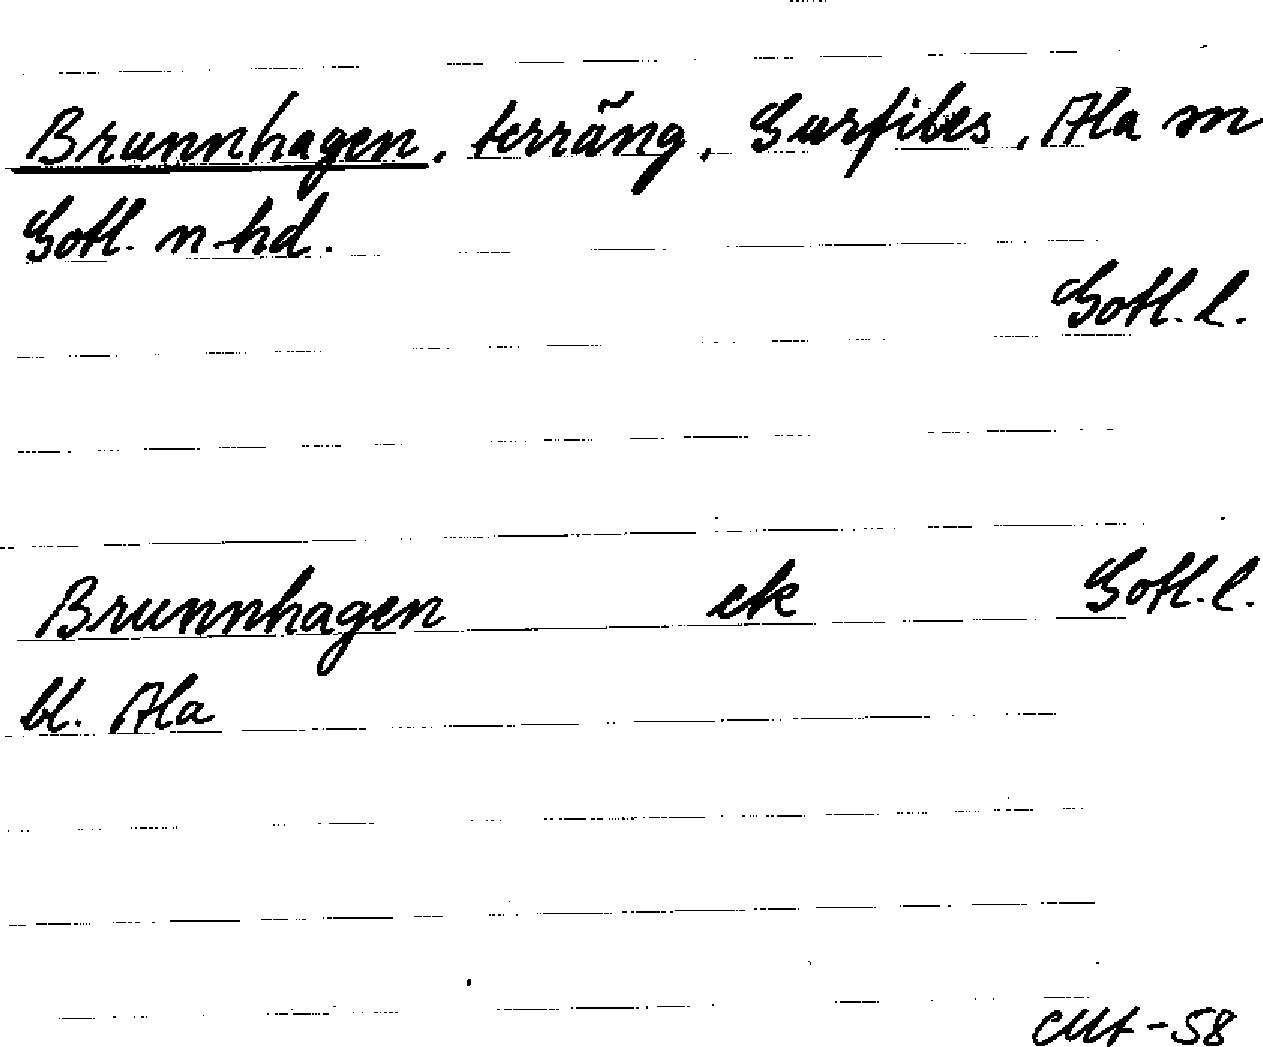 Brunnhagen, terräng, Gurfiles, Ala sn
Gotl. n hd.
Gotl. l.
Brunnhagen ek Gotl. l.
bl. Ala
-58